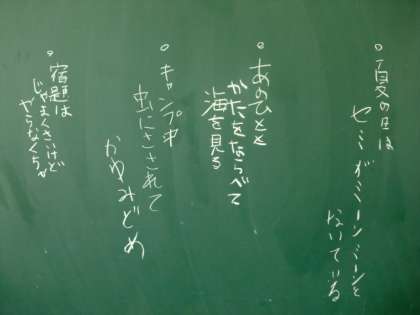 ○夏の日は
セミがミーンミーンと
ないている
○あのひとと
かたをならべて
海を見る
○キャンプ中
虫にさされて
かゆみどめ
○宿題は
じゃまくさいけど
やらなくちゃ